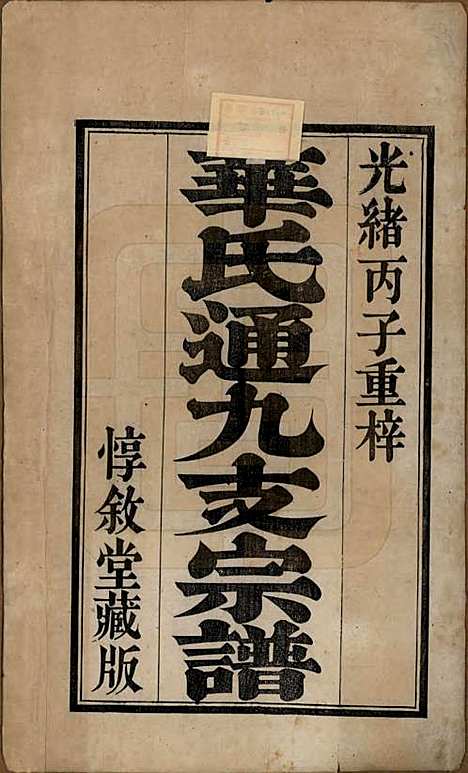 光緒丙子重梓
華氏通九支宗譜
惇敘堂藏版